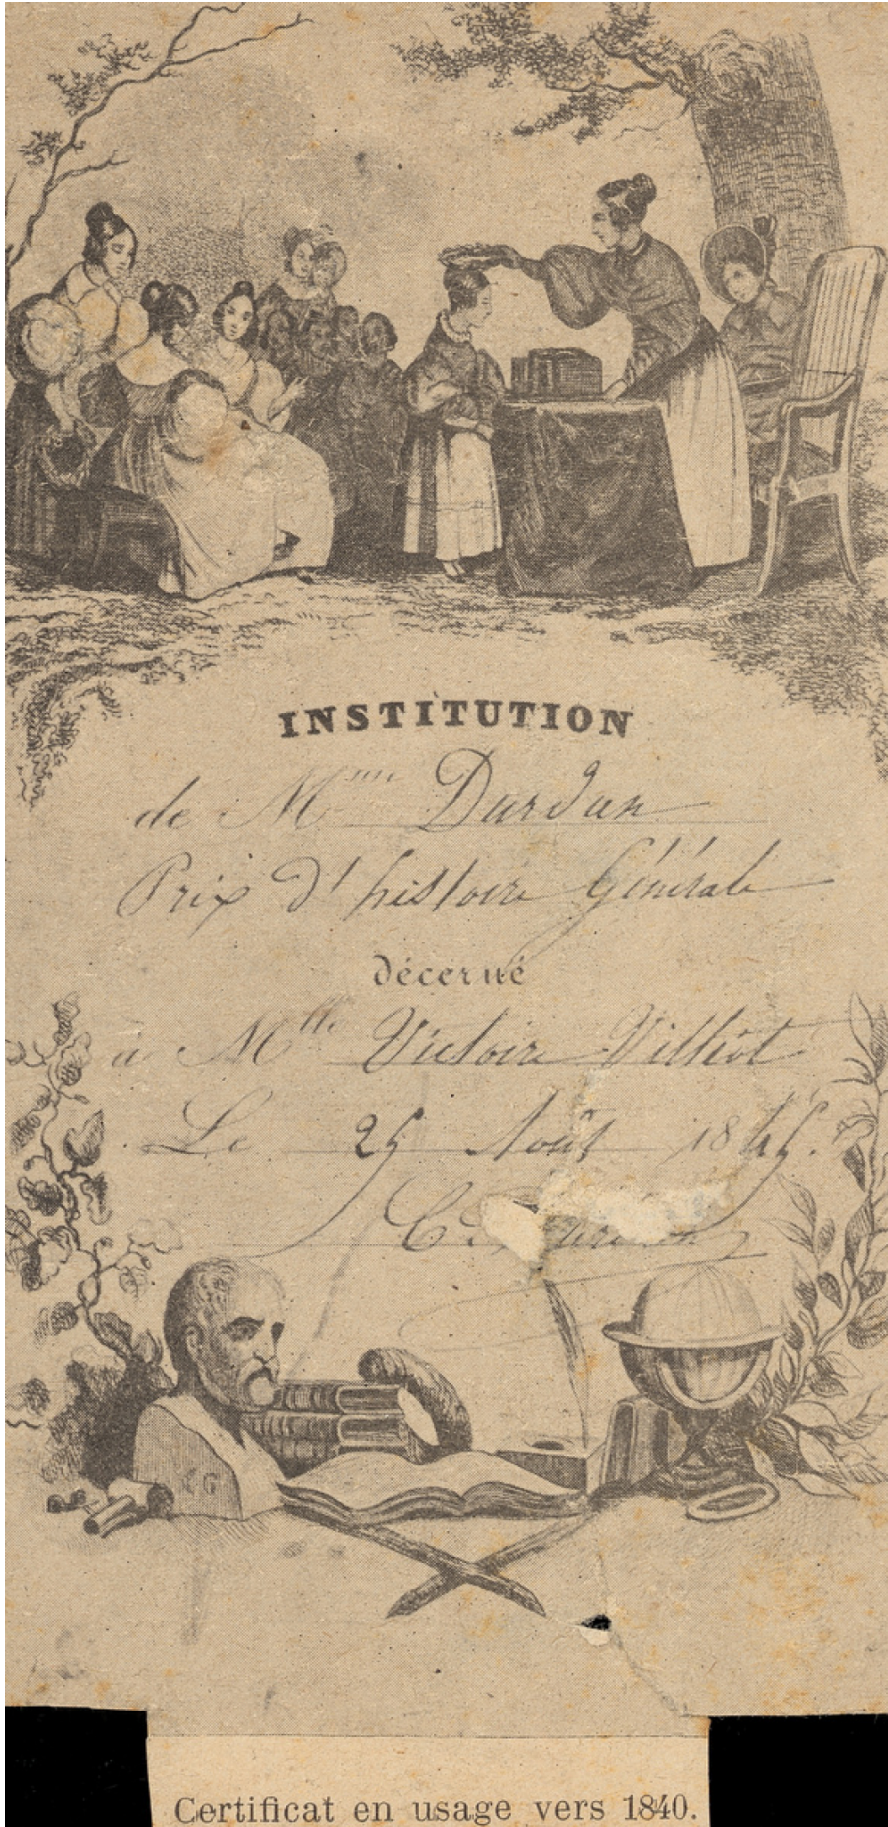 INSTITUTION
de Mme Durdan
Prix d'histoire Générale
décerné
à Mlle Victoire Villiot
Le 25 Août 1845.
C.
CG
Certificat en usage vers 1840.